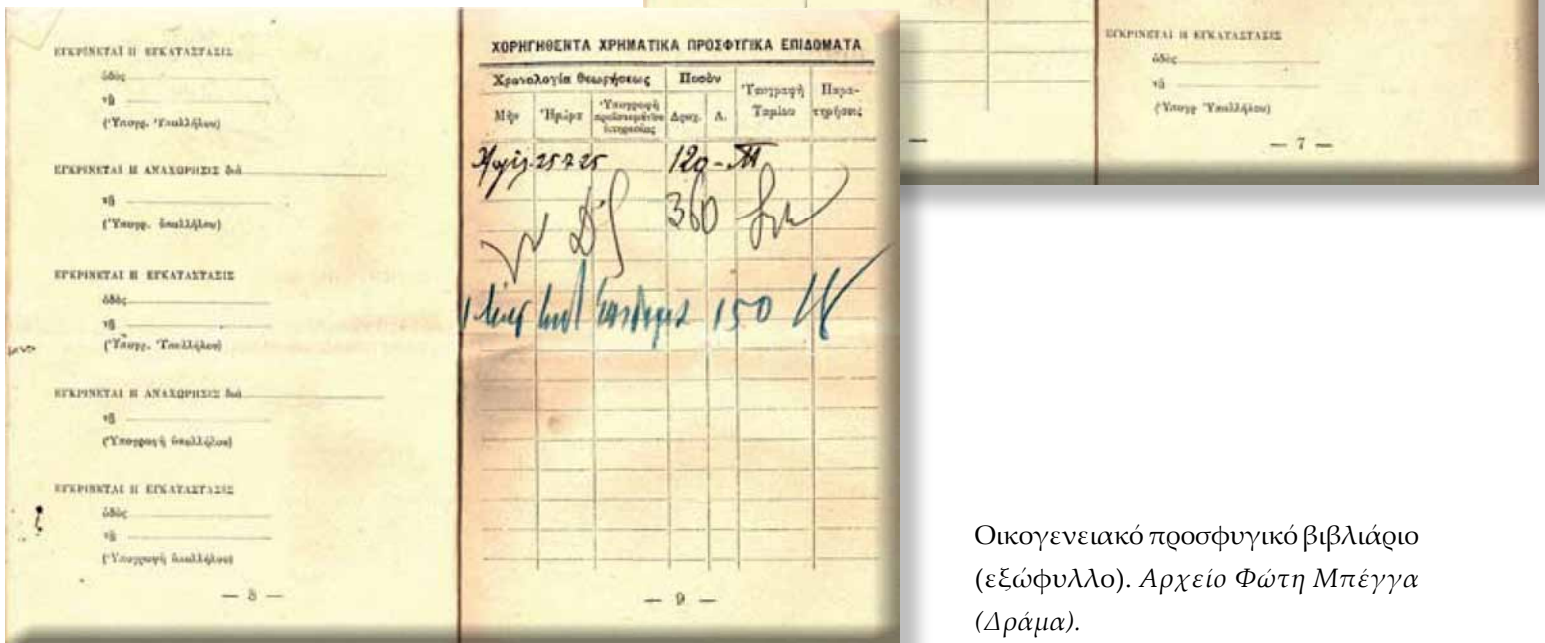 ΕΓΚΡΙΝΕΤΑΙ Η ΕΓΚΑΤΑΣΤΑΣΙΣ
ὁδὸς
τῇ
(Ὑπογρ. Ὑπαλλήλου)
ΕΓΚΡΙΝΕΤΑΙ Η ΑΝΑΧΩΡΗΣΙΣ διὰ
τῇ
(Ὑπογρ. ὑπαλλήλου)
ΕΓΚΡΙΝΕΤΑΙ Η ΕΓΚΑΤΑΣΤΑΣΙΣ
ὁδὸς
τῇ
(Ὑπογρ. Ὑπαλλήλου)
ΕΓΚΡΙΝΕΤΑΙ Η ΑΝΑΧΩΡΗΣΙΣ διὰ
τῇ
(Ὑπογραφὴ ὑπαλλήλου)
ΕΓΚΡΙΝΕΤΑΙ Η ΕΓΚΑΤΑΣΤΑΣΙΣ
ὁδὸς
τῇ
(Ὑπογραφὴ ὑπαλλήλου)
— 8 —
ΧΟΡΗΓΗΘΕΝΤΑ ΧΡΗΜΑΤΙΚΑ ΠΡΟΣΦΥΓΙΚΑ ΕΠΙΔΟΜΑΤΑ
Χρονολογία θεωρήσεως Ποσὸν Ὑπογραφὴ Ταμίου Παρατηρήσεις
Μὴν Ἡμέρα Ὑπογραφὴ προϊσταμένου ὑπηρεσίας Δραχ. Λ.
25 7 25 120 -
360
150
— 9 —
ΕΓΚΡΙΝΕΤΑΙ Η ΕΓΚΑΤΑΣΤΑΣΙΣ
ὁδὸς
τῇ
(Ὑπογρ Ὑπαλλήλου)
— 7 —
Οικογενειακό προσφυγικό βιβλιάριο
(εξώφυλλο). Αρχείο Φώτη Μπέγγα
(Δράμα).